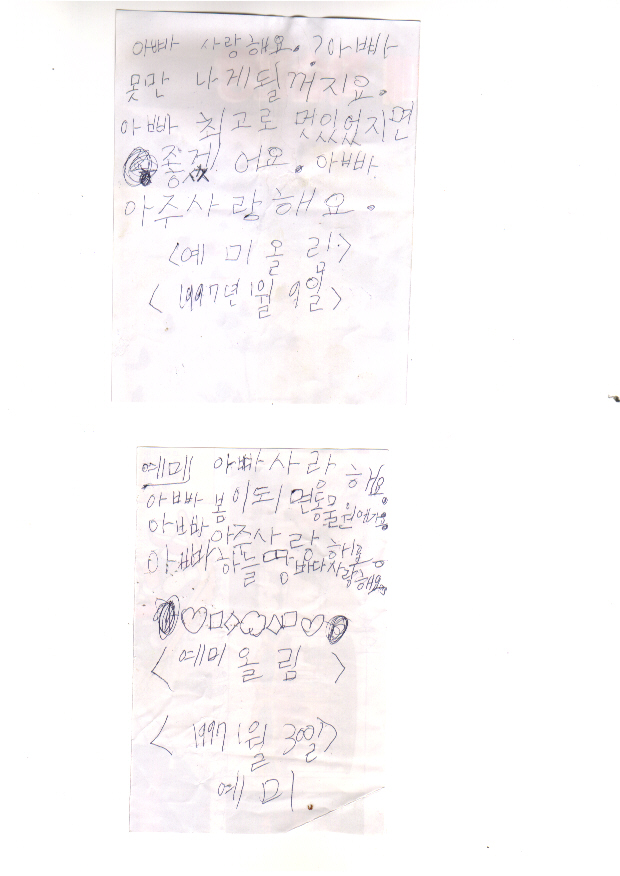 아빠 사랑해요. ?아빠
못만 나게될꺼지요.
아빠 최고로 멋있었지면
좋겠 어요. 아빠
아주사 랑해요.
<예 미 올 림>
< 1997년 1월 9일>
예미 아빠사 랑 해요.
아빠 봄 이되 면동물원에가요.
아빠 아주사 랑 해요.
아빠하늘땅 바다사랑해요.
<예미 올 림 >
< 1997 1월 30일>
예 미.